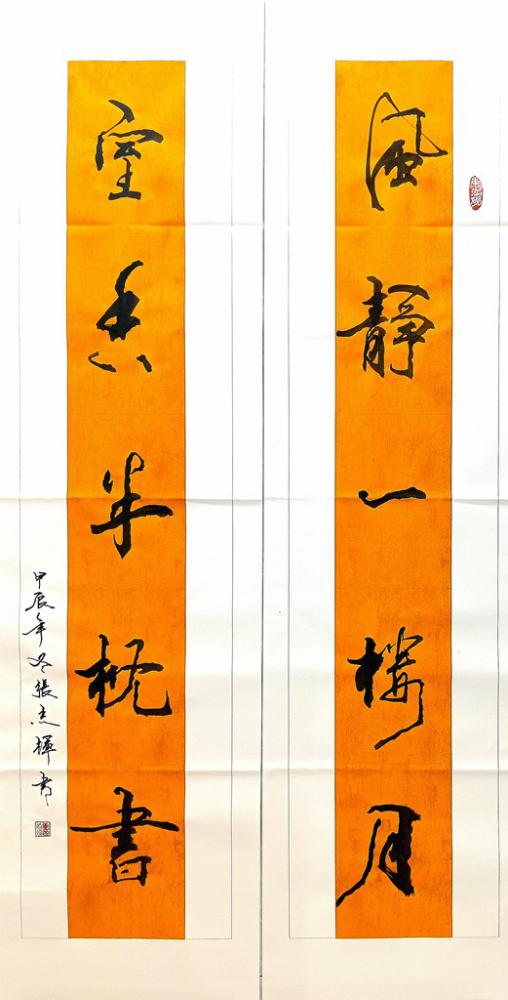 風靜一樓月
室香半枕書
甲辰年冬張志輝書